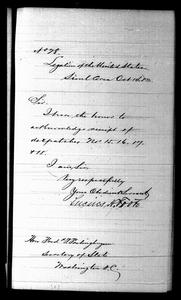 No 78.
Legation of the United States
Seoul Corea Oct 16
Sir.
I have the honor to
acknowledge receipt of
despatches Nos 15. 16. 17.
& 18.
I am, Sir,
Very respectfully
Your Obedient Servant
Lucius H. Foote
Hon Fred T. Frelinghuysen
Secretary of State
Washington D.C.